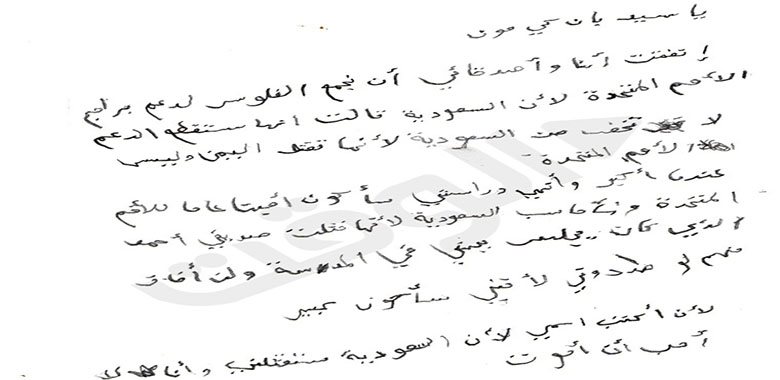 يا سيد بان كي مون
إتفقت أنا وأصدقائي أن نجمع الفلوس لدعم برامج
الأمم المتحدة لأن السعودية قالت انها ستقطع الدعم
لا تخف من السعودية لأنها تقتل اليمن وليس
الأمم المتحدة
عندما أكبر وأتمي دراستي سأكون أمينا عاما للأمم
المتحدة و السعودية لأنها قتلت صديقي أحمد
الذي كان يجلس بجنبي في المدرسة ولن أخاف
منهم لأنني سأكون كبير
لن أكتب اسمي لأن السعودية ستقتلني وأنا لا
أحب أن أموت
الوقت